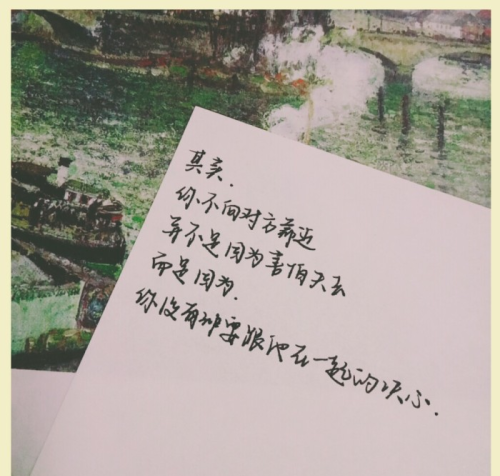 其实.
你不向对方靠近
并不是因为害怕失去
而是因为.
你没有那要跟他在一起的决心.